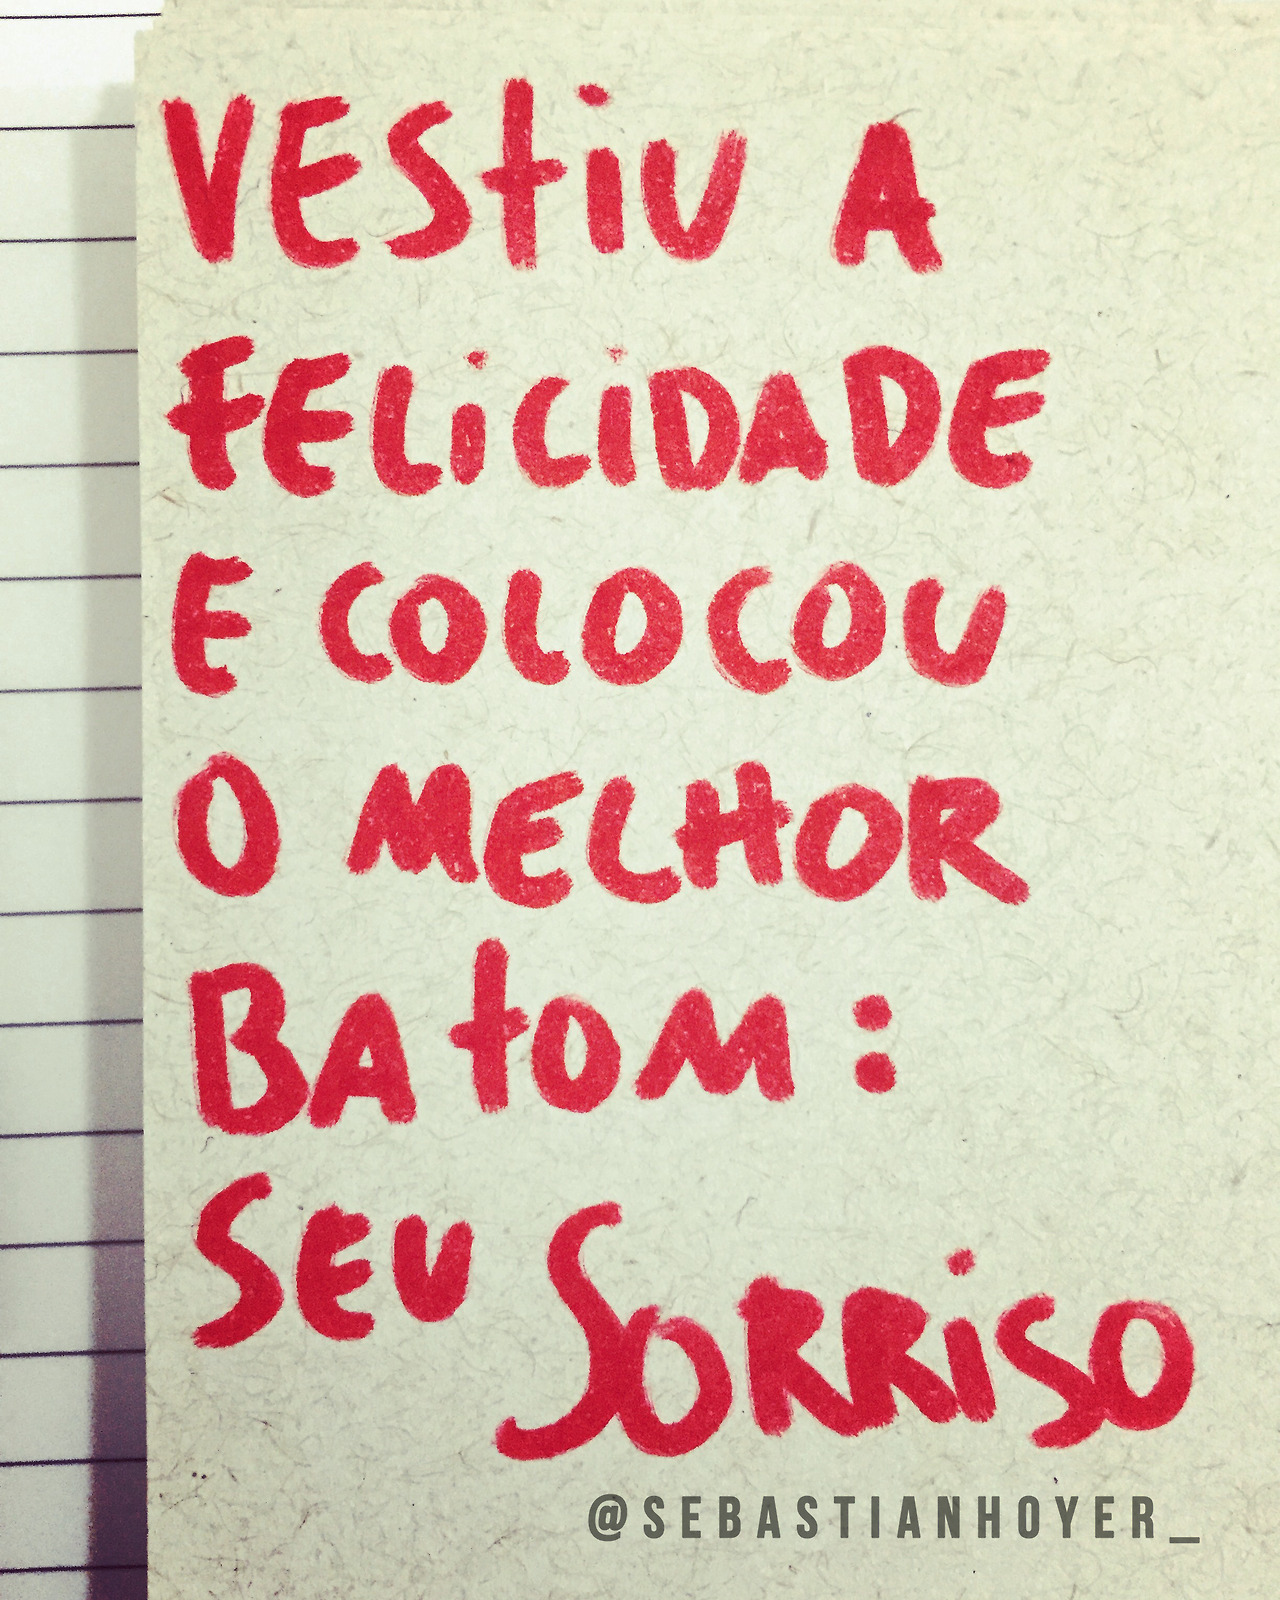 VEStiU A
FELiCiDADE
E COLOCOU
O MELHOR
BAtOM:
SEU SORRiSO
@SEBASTIANHOYER_